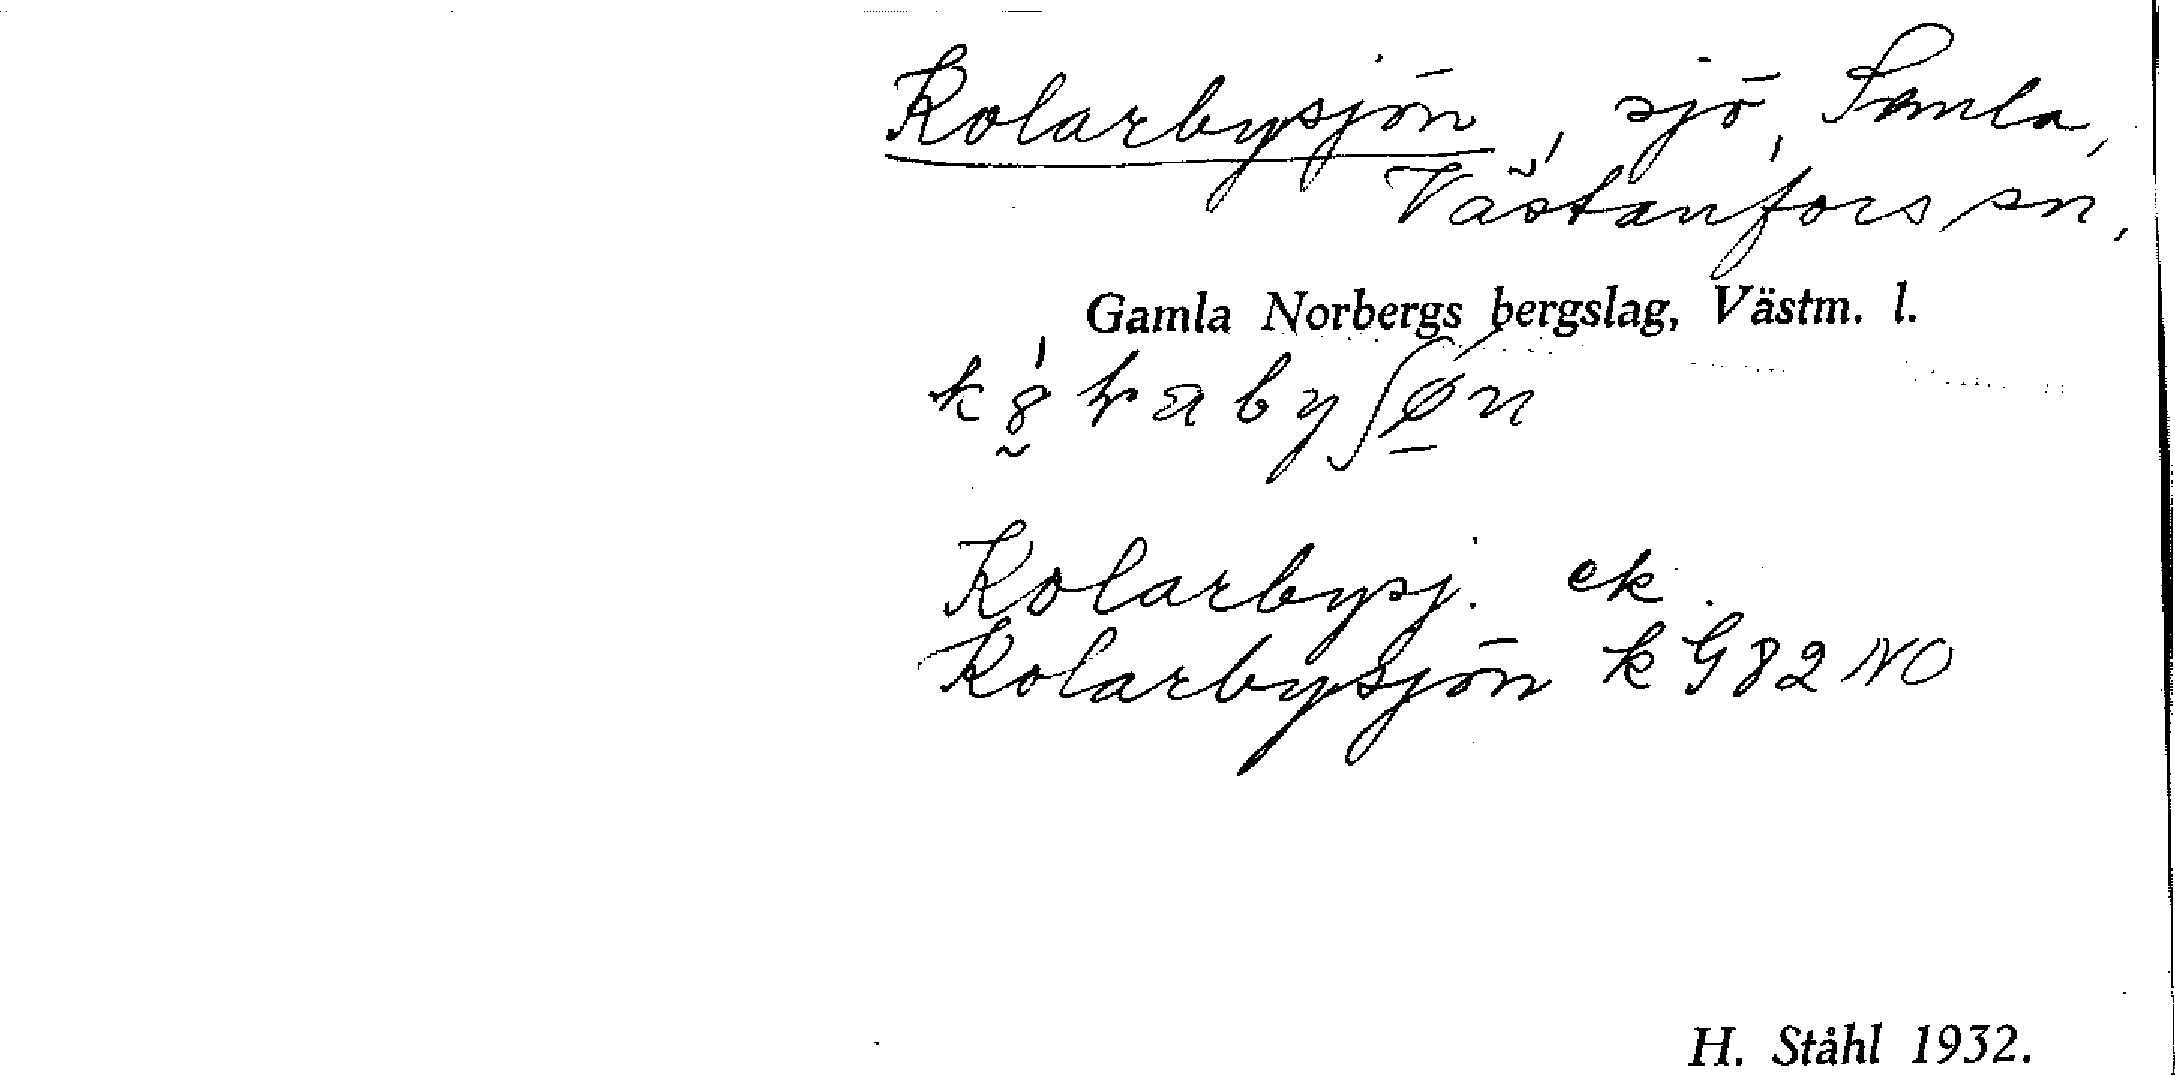 Kolarbysjön, sjö, Semla,
Västanfors sn,
Gamla Norbergs bergslag, Västm. l.
Kolarbysj. ek.
Kolarbysjön k G 82 NO
H. Ståhl 1932.